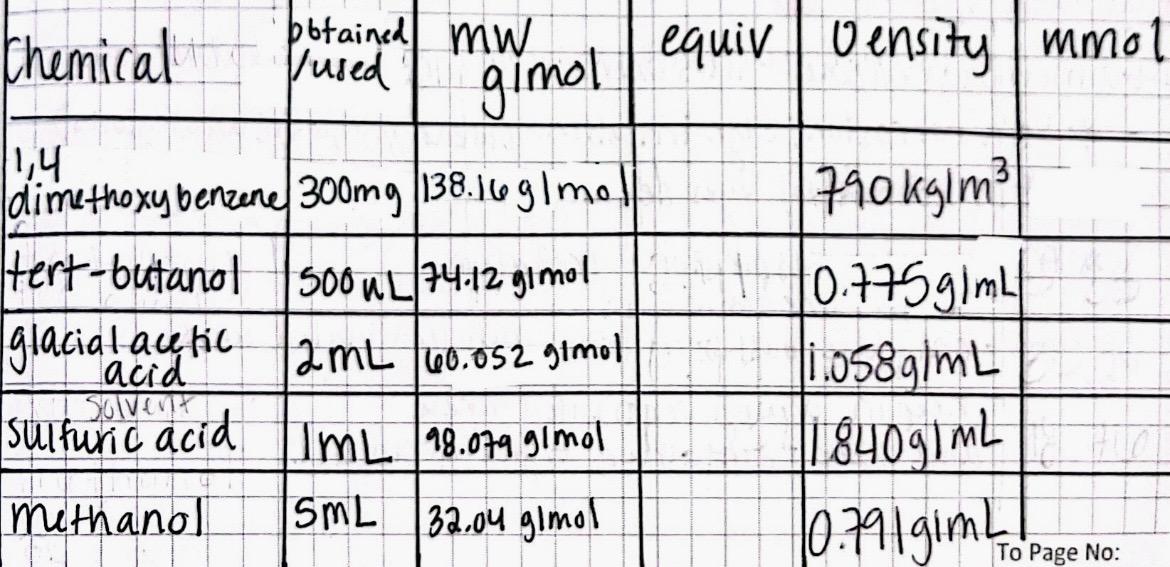 Chemical obtained/used MW g/mol equiv Density mmol
1,4 dimethoxybenzene 300mg 138.16 g/mol 790 kg/m³
tert-butanol 500 uL 74.12 g/mol 0.775 g/mL
glacial acetic acid 2mL 60.052 g/mol 1.058 g/mL
solvent
sulfuric acid 1mL 98.079 g/mol 1.840 g/mL
methanol 5mL 32.04 g/mol 0.791 g/mL
To Page No: